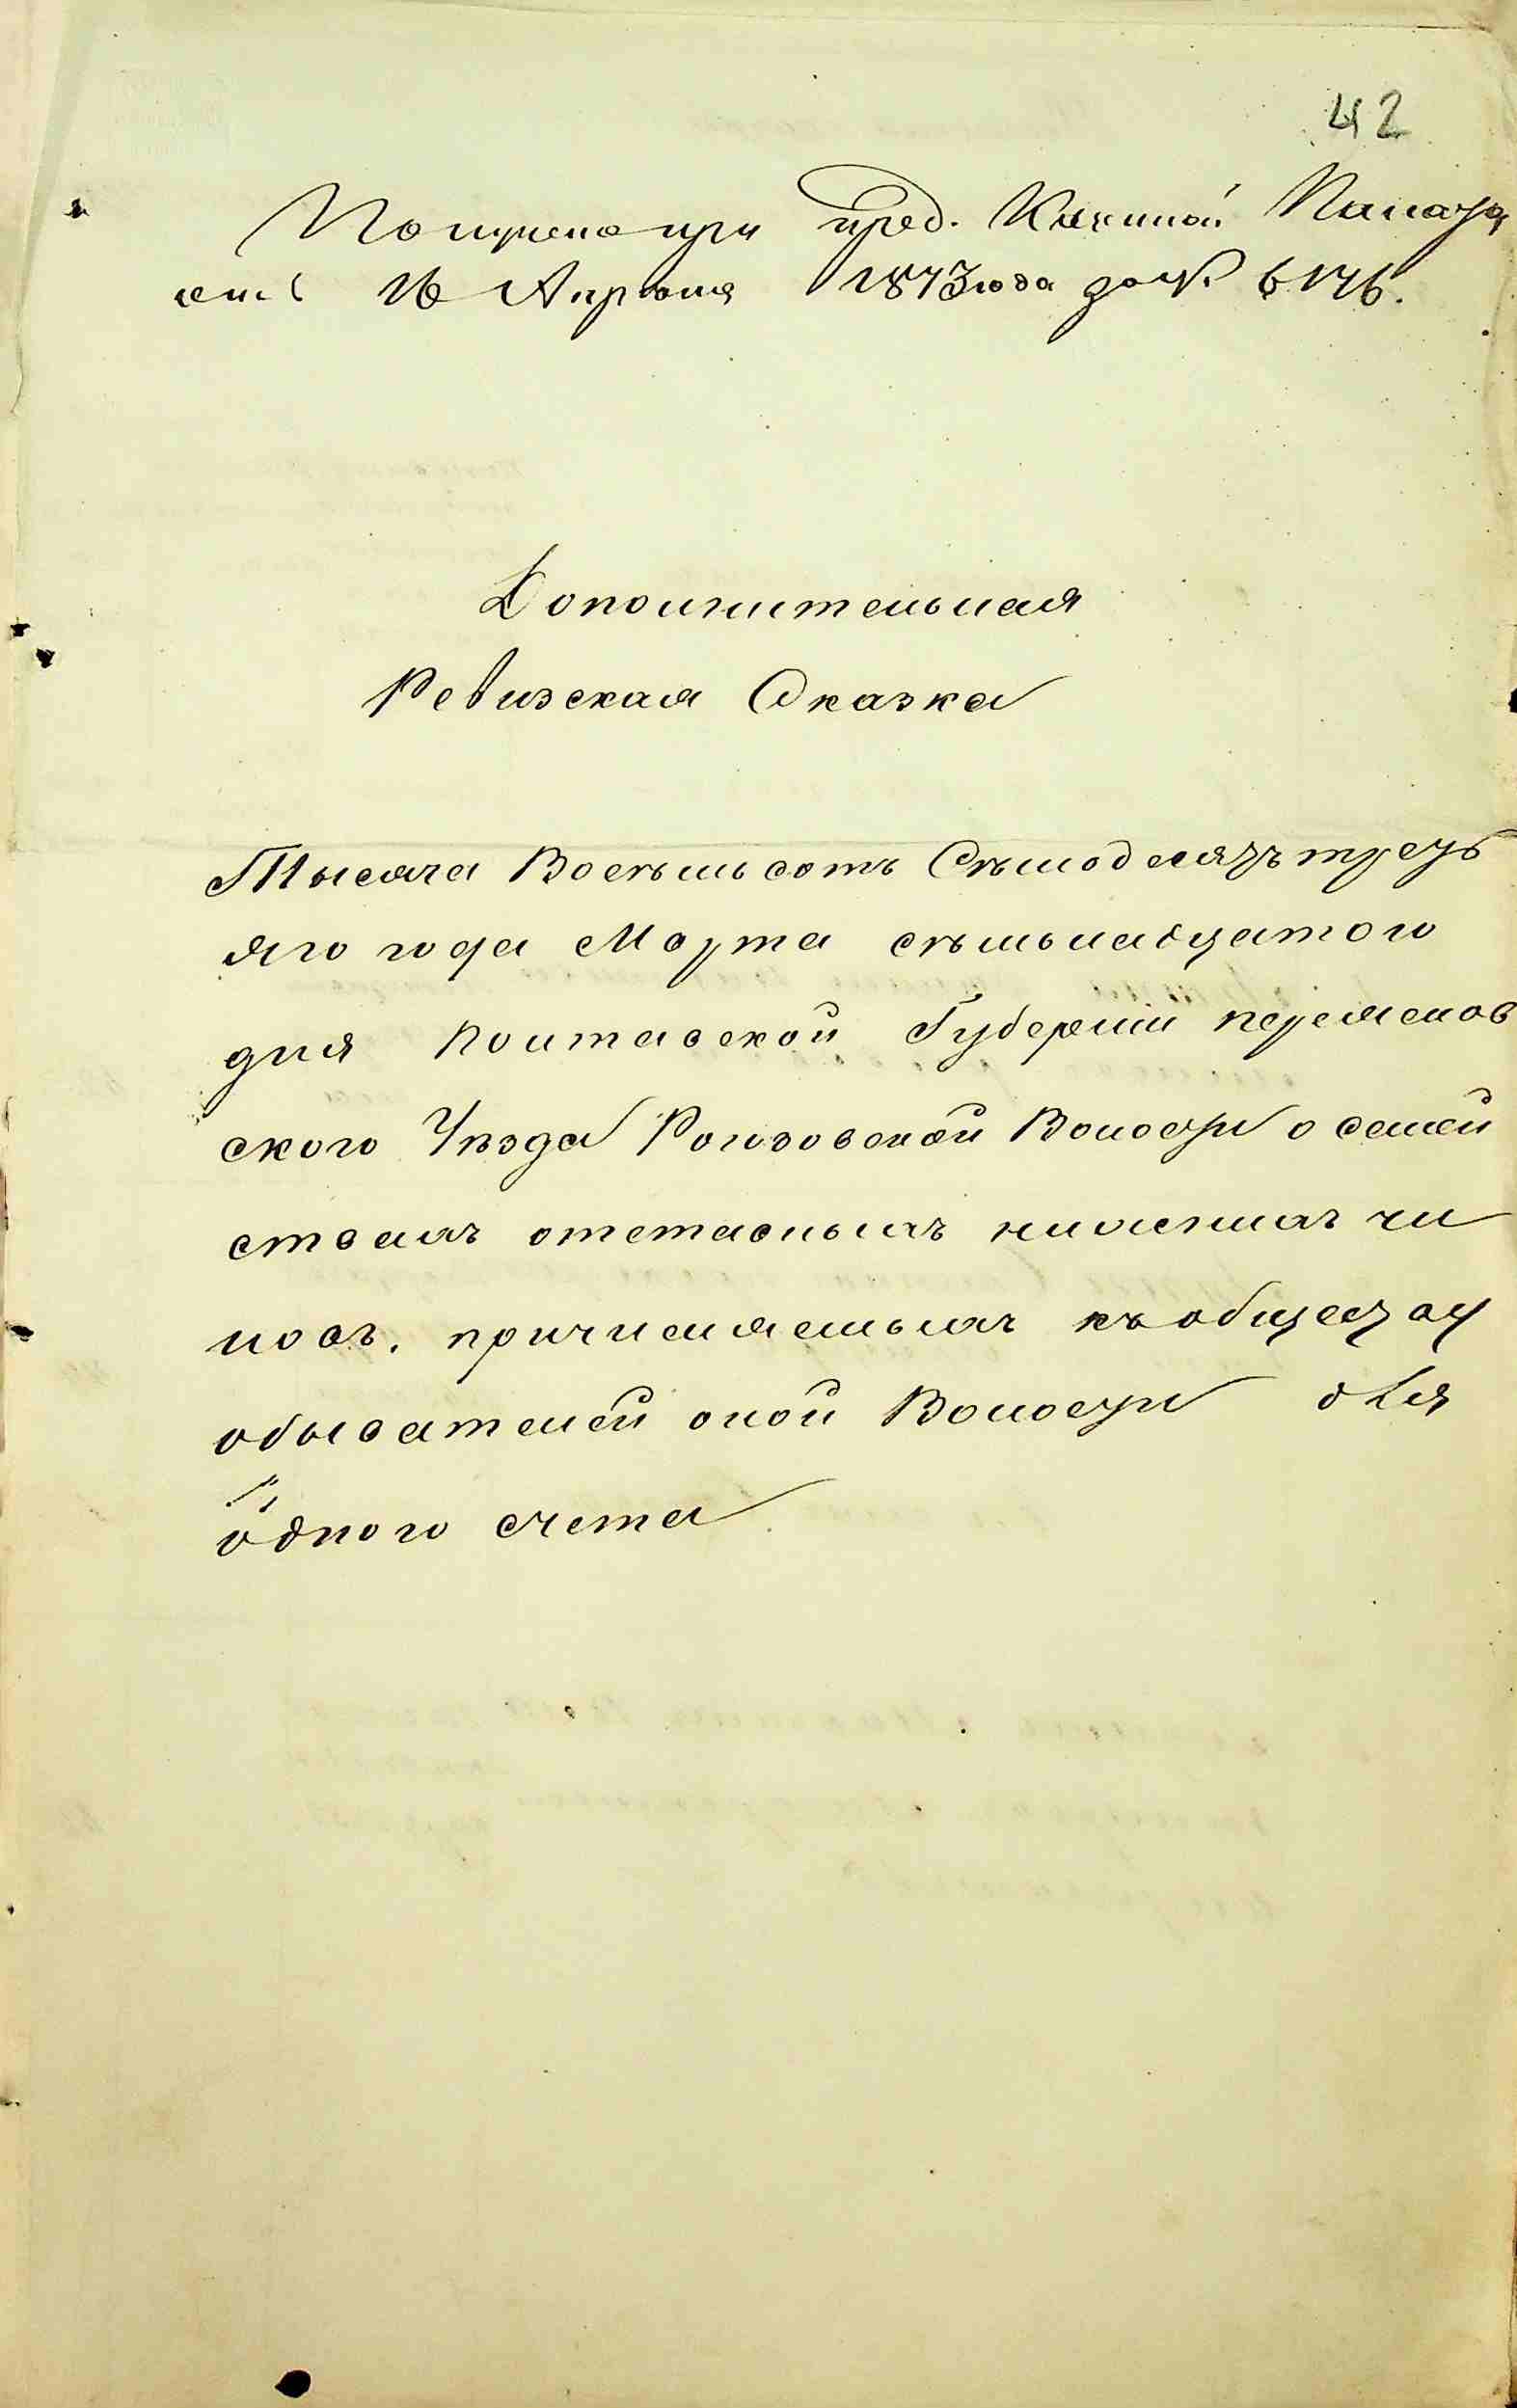 42
Получено при пред. Казенной Палаты
16 Апреля 1873 года за №. 6176.
Дополнительная
Ревизская Сказка
Тысяча Восемьсотъ Семдесятъ треть
яго года Марта семьнадцатого
дня Полтавской Губерніи переяслов
ского Уезда Рогозовской Волости о семей
ствахъ отставныхъ нижнихъ чи
новъ. причисляемыхъ къ обществу
обывателей оной Волости для
одного счета